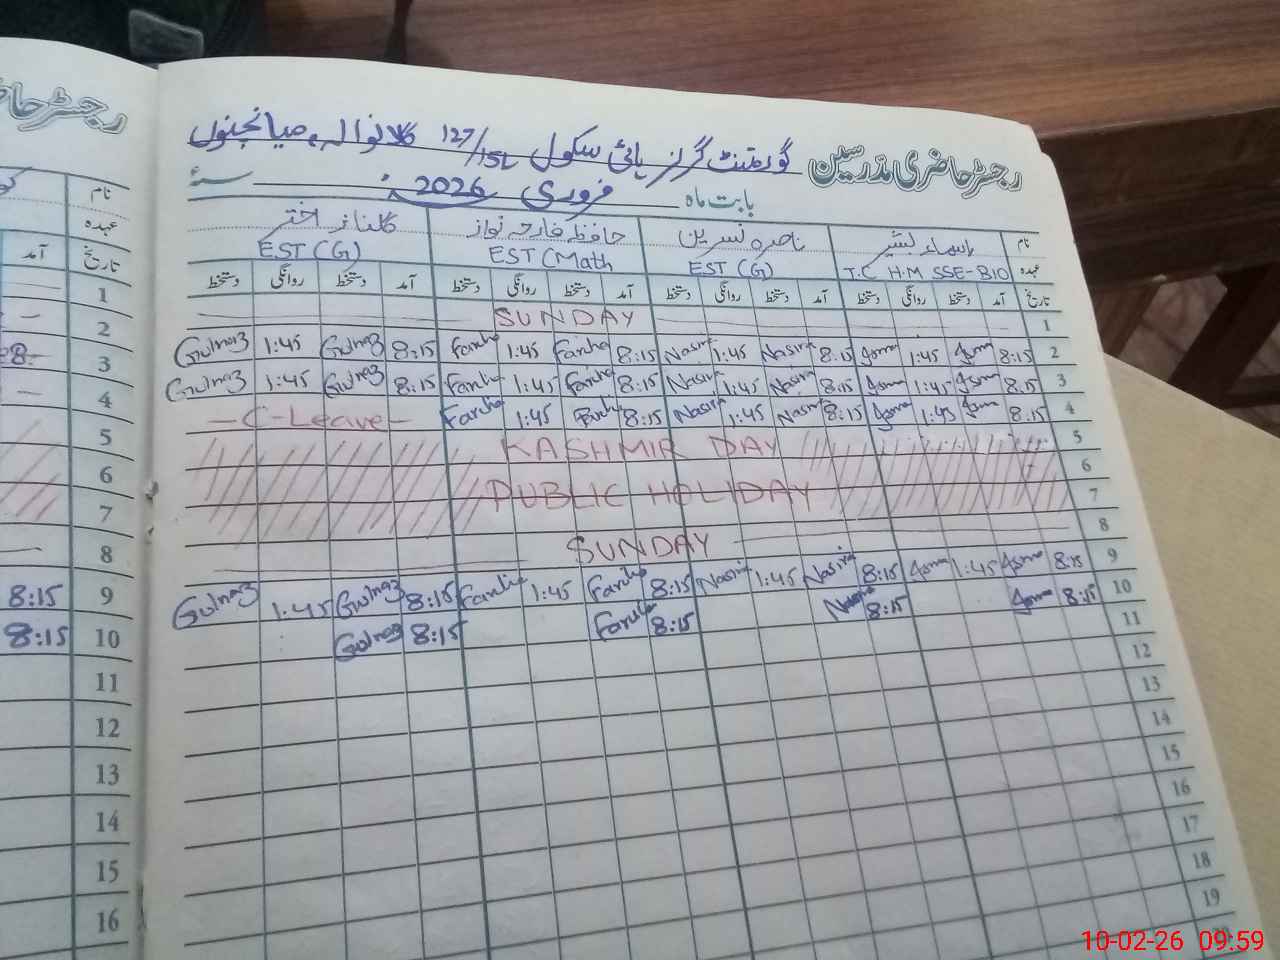 رجسٹر حاضری مدرسین گورنمنٹ گرلز ہائی سکول 127/15L کلانوالہ، میانچنوں
بابت ماہ فروری 2026ء سنہ
نام اسماء بشیر ناصرہ نسرین حافظہ فارحہ نواز گلناز اختر
عہدہ T.C H.M SSE-BIO EST (G) EST (Math EST (G)
تاریخ آمد دستخط روانگی دستخط آمد دستخط روانگی دستخط آمد دستخط روانگی دستخط آمد دستخط روانگی دستخط
1 SUNDAY
2 8:15 Asma 1:45 Asma 8:15 Nasira 1:45 Nasira 8:15 Fariha 1:45 Fariha 8:15 Gulnaz 1:45 Gulnaz
3 8:15 Asma 1:45 Asma 8:15 Nasira 1:45 Nasira 8:15 Fariha 1:45 Fariha 8:15 Gulnaz 1:45 Gulnaz
4 8:15 Asma 1:45 Asma 8:15 Nasira 1:45 Nasira 8:15 Fariha 1:45 Fariha - C-Leave -
5 KASHMIR DAY
6 PUBLIC HOLIDAY
7
8 SUNDAY
9 8:15 Asma 1:45 Asma 8:15 Nasira 1:45 Nasira 8:15 Fariha 1:45 Fariha 8:15 Gulnaz 1:45 Gulnaz
10 8:15 Asma 8:15 Nasira 8:15 Fariha 8:15 Gulnaz
11
12
13
14
15
16
17
18
19
20
رجسٹر حاضری
نام
عہدہ
تاریخ آمد
1
2
3
4
5
6
7
8
9 8:15
10 8:15
11
12
13
14
15
16
10-02-26 09:59